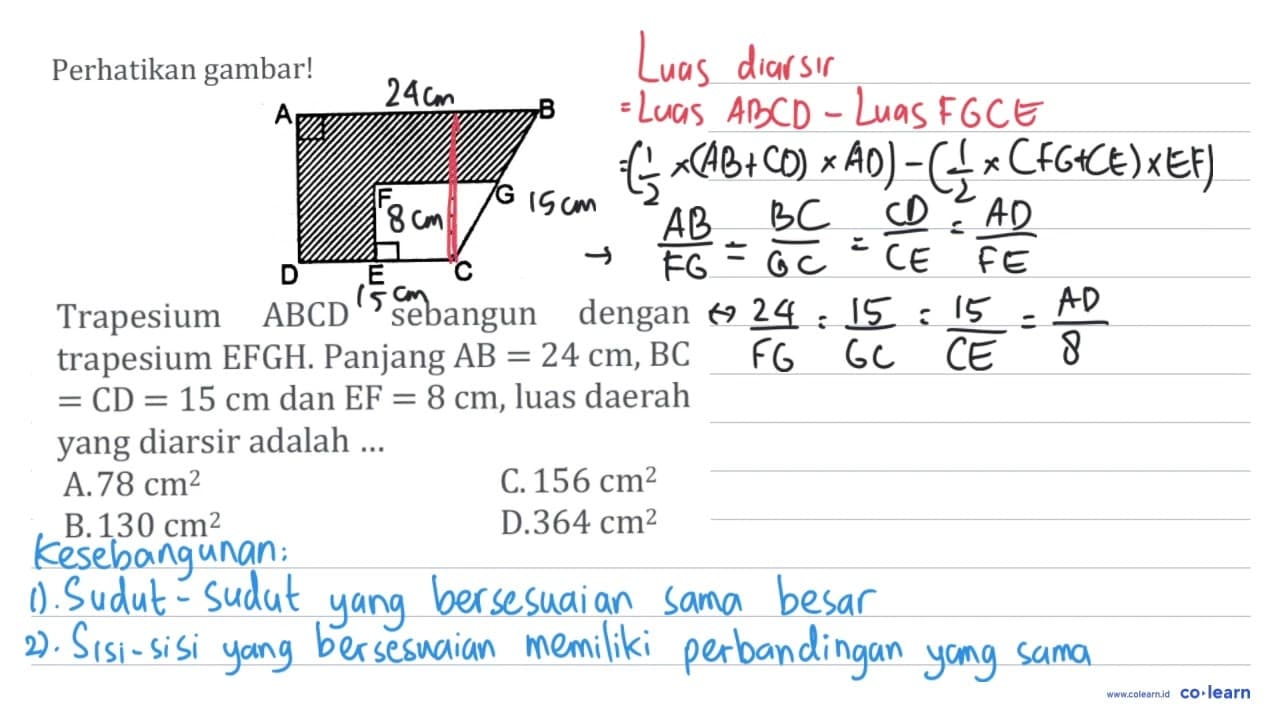 Perhatikan gambar!
24 cm
A
B
F
G
15 cm
8 cm
D
E
C
15 cm
Trapesium ABCD sebangun dengan
trapesium EFGH. Panjang AB = 24 cm, BC
= CD = 15 cm dan EF = 8 cm, luas daerah
yang diarsir adalah ...
A. 78 cm²
C. 156 cm²
B. 130 cm²
D. 364 cm²
Luas diarsir
= Luas ABCD - Luas FGCE
= (1/2 × (AB + CD) × AD) - (1/2 × (FG+CE) × EF)
→ AB/FG = BC/GC = CD/CE = AD/FE
↔ 24/FG = 15/GC = 15/CE = AD/8
Kesebangunan:
1). Sudut - sudut yang bersesuaian sama besar
2). Sisi - sisi yang bersesuaian memiliki perbandingan yang sama
www.colearn.id co·learn